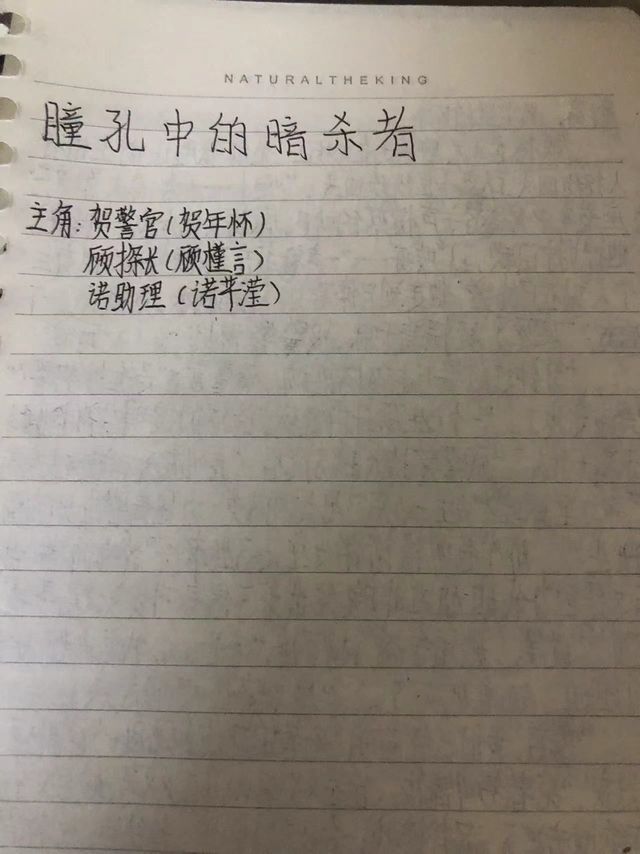 NATURALTHEKING
瞳孔中的暗杀者
主角:贺警官(贺年怀)
顾探长(顾槿言)
诺助理(诺芊滢)